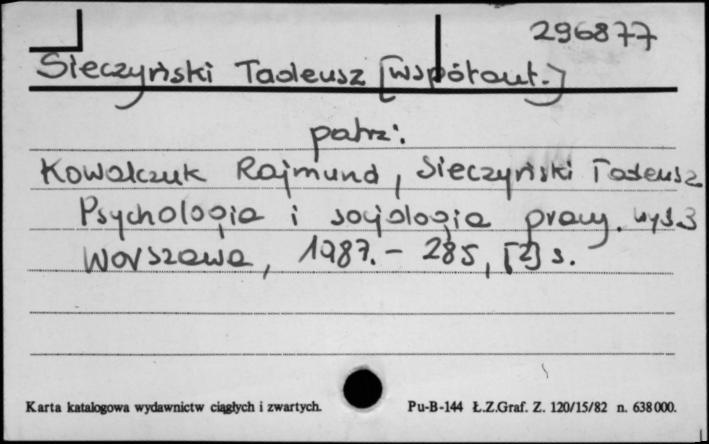 296877
Sieczyński Tadeusz [współaut.]
patrz:
Kowalczuk Rajmund, Sieczyński Tadeusz
Psychologia i socjologia pracy. wyd. 3
Warszawa, 1987. - 285, [2] s.
Karta katalogowa wydawnictw ciągłych i zwartych. Pu-B-144 Ł.Z.Graf. Z. 120/15/82 n. 638000.